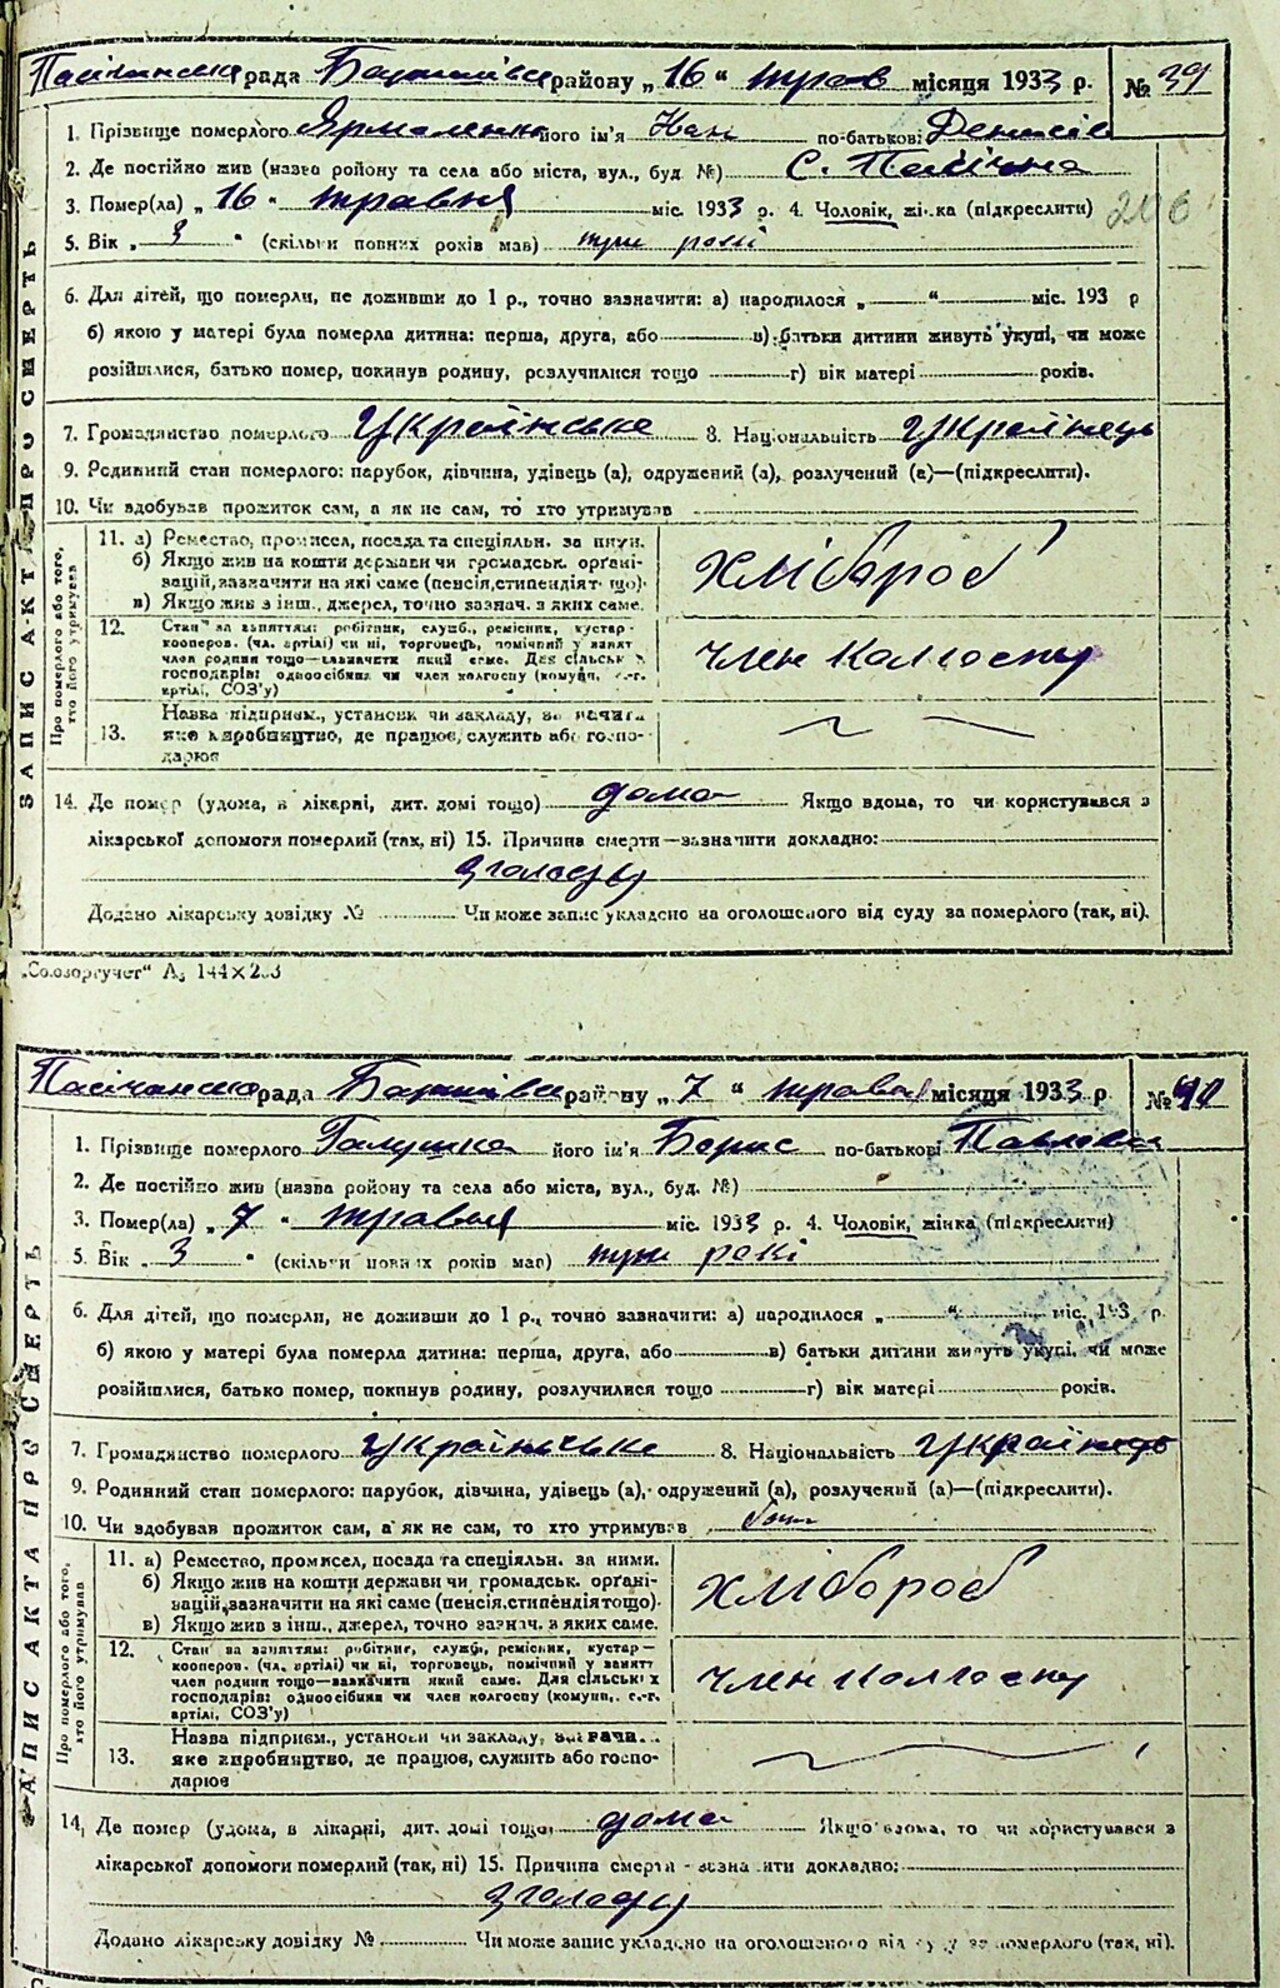 Пасічанська рада Баришівськ району „ 16 “ трав місяця 1933 р. № 39
1. Прізвище померлого Ярмоленко його ім'я Іван по-батькові Денисів
2. Де постійно жив (назва ройону та села або міста, вул., буд №) С. Пасічна
3. Помер(ла) „ 16 “ травня міс. 1933 р. 4. Чоловік, жінка (підкреслити) 206
5. Вік „ 3 “ (скільки повних років мав) три рокі
6. Для дітей, що померли, не доживши до 1 р., точно зазначити: а) народилося „ “ міс. 193 р
б) якою у матері була померла дитина: перша, друга, або в) батьки дитини живуть укупі, чи може
розійшлися, батько помер, покинув родину, розлучилися тощо г) вік матері років.
7. Громадянство померлого Українське 8. Національність Українець
9. Родинний стан померлого: парубок, дівчина, удівець (а), одружений (а), розлучений (а)—(підкреслити).
10. Чи здобував прожиток сам, а як не сам, то хто утримував
11. а) Ремество, промисел, посада та спеціяльн. за ними.
б) Якщо жив на кошти держави чи громадськ. орґані-
зацій, зазначити на які саме (пенсія, стипендія т. що).
в) Якщо жив з інш., джерел, точно зазнач. з яких саме.
хлібороб
12. Стан за заняттям: робітник, служб., ремісник, кустар-
кооперов. (чл. артілі) чи ні, торговець, помічний у занят
член родини тощо—зазначити який саме. Для сільськ х
господарів: одноосібник чи член колгоспу (комуни, с.-г.
артілі, СОЗ'у)
член колгоспу
13. Назва підприєм., установи чи закладу, зазначити
яке виробництво, де працює, служить або госпо-
дарює
14. Де помер (удома, в лікарні, дит. домі тощо) дома Якщо вдома, то чи користувався з
лікарської допомоги померлий (так, ні) 15. Причина смерти—зазначити докладно:
з голоду
Додано лікарську довідку № Чи може запис укладено на оголошеного від суду за померлого (так, ні).
ЗАПИС АКТА ПРО СМЕРТЬ
Про померлого або того,
хто його утримував
„Союзоргучет“ А₅ 144×203
Пасічанська рада Баришівськ району „ 7 “ травня місяця 1933 р № 40
1. Прізвище померлого Галушка його ім'я Борис по-батькові Павлови
2. Де постійно жив (назва ройону та села або міста, вул., буд. №)
3. Помер(ла) „ 7 “ травня міс. 1933 р. 4. Чоловік, жінка (підкреслити)
5. Вік „ 3 “ (скільки повних років мав) три рокі
6. Для дітей, що померли, не доживши до 1 р., точно зазначити: а) народилося „ “ міс. 193 р.
б) якою у матері була померла дитина: перша, друга, або в) батьки дитини живуть укупі, чи може
розійшлися, батько помер, покинув родину, розлучилися тощо г) вік матері років.
7. Громадянство померлого Українське 8. Національність Українець
9. Родинний стан померлого: парубок, дівчина, удівець (а), одружений (а), розлучений (а)—(підкреслити).
10. Чи здобував прожиток сам, а як не сам, то хто утримував
11. а) Ремество, промисел, посада та спеціяльн. за ними.
б) Якщо жив на кошти держави чи громадськ. орґані-
зацій, зазначити на які саме (пенсія, стипендія тощо).
в) Якщо жив з інш., джерел, точно зазнач. з яких саме.
хлібороб
12. Стан за заняттям: робітник, служб, ремісник, кустар—
кооперов. (чл. артілі) чи ні, торговець, помічний у занятт
член родини тощо—зазначити який саме. Для сільськ х
господарів: одноосібник чи член колгоспу (комуни,. с.-г.
артілі, СОЗ'у)
член колгоспу
13. Назва підприєм., установи чи закладу, зазначи...
яке виробництво, де працює, служить або госпо-
дарює
14. Де помер (удома, в лікарні, дит. домі тощо) дома Якщо вдома, то чи користувався з
лікарської допомоги померлий (так, ні) 15. Причина смерти - зазначити докладно:
з голоду
Додано лікарську довідку № Чи може запис укладено на оголошеного від суду за померлого (так, ні).
ЗАПИС АКТА ПРО СМЕРТЬ
Про померлого або того,
хто його утримував